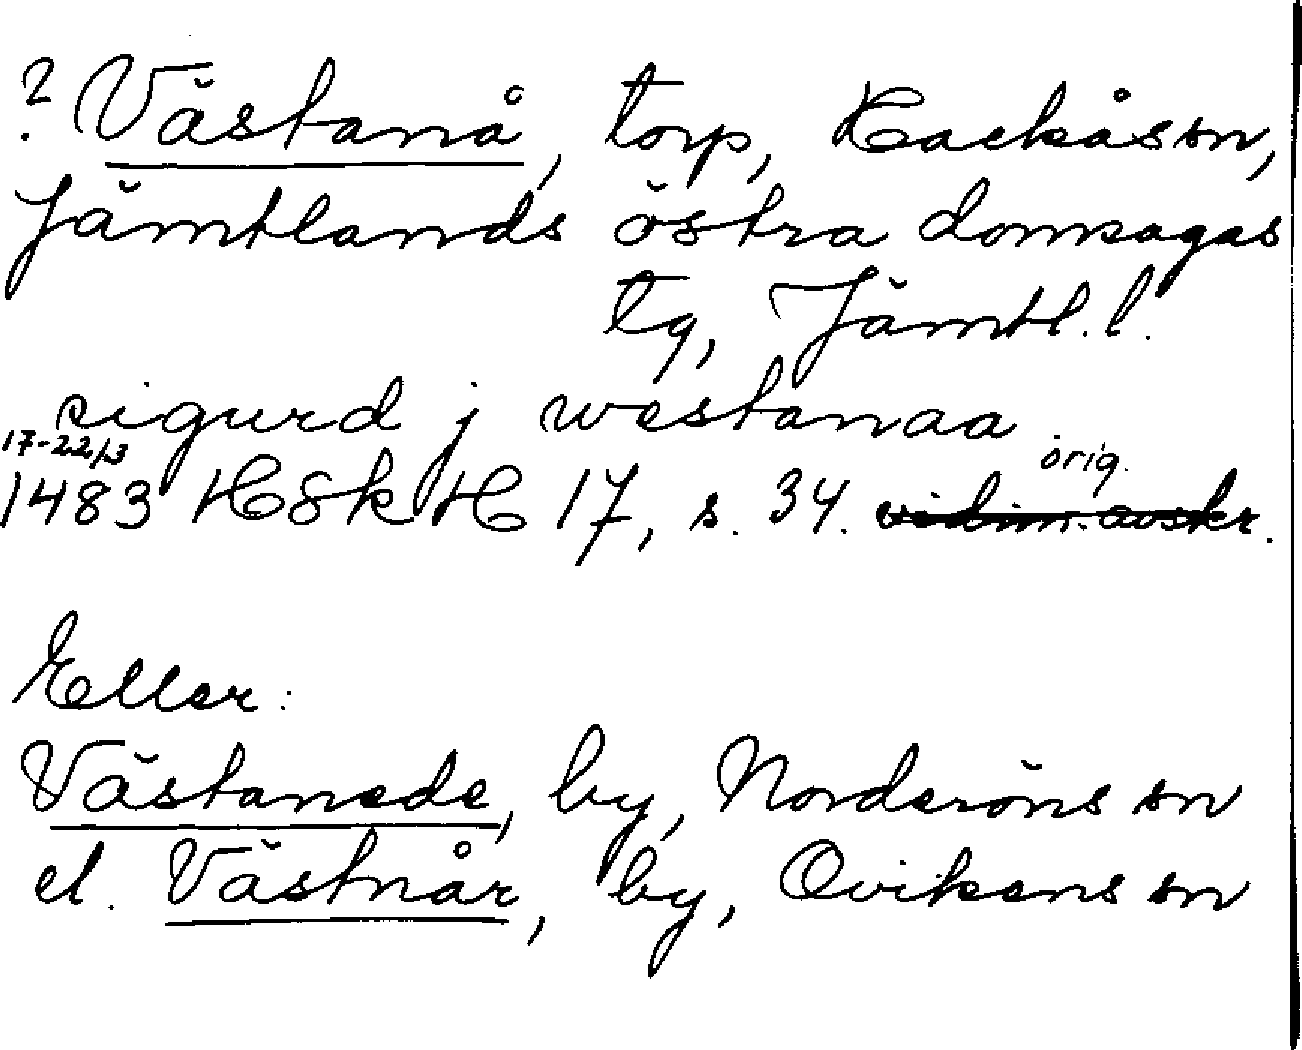 ? Västanå, torp, Hackås sn,
Jämtlands östra domsagas
tg, Jämtl. l.
sigurd j westanaa
17-22/3
1483 HSkH 17, s. 34. orig. vidim. avskr.
Eller:
Västanede, by, Norderöns sn
el. Västnår, by, Ovikens sn